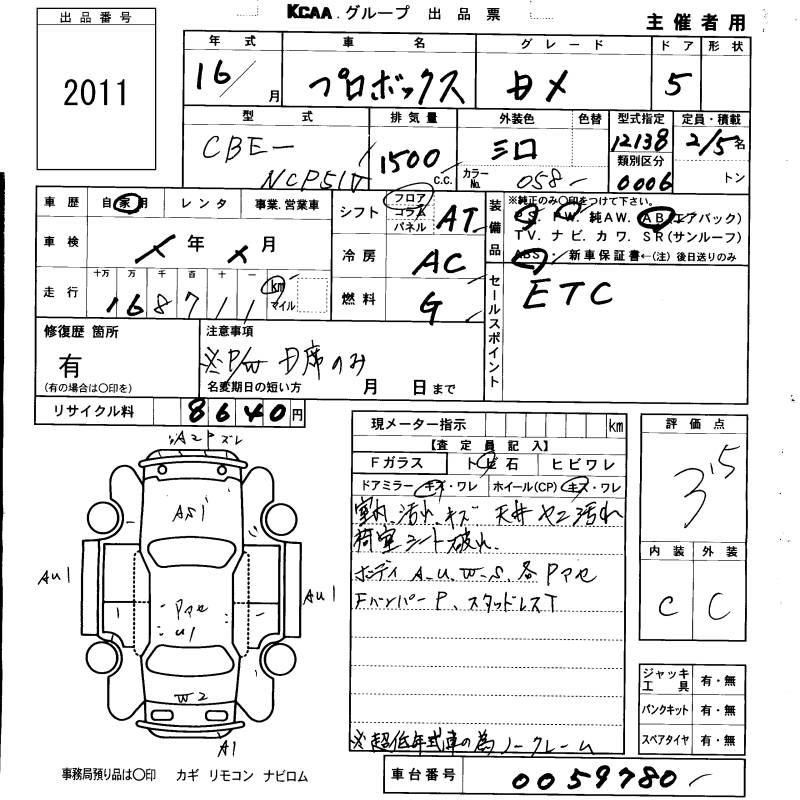 KCAA グループ 出品票
主催者用
出品番号
2011
年式 車名 グレード ドア 形状
16/ 月 プロボックス DX 5
型式 排気量 外装色 色替 型式指定 定員・積載
CBE- 1500 c.c. シロ 12138 2/5 名
NCP51V カラーNo. 058- 類別区分 0006 トン
車歴 自家用 レンタ 事業.営業車
シフト フロア コラム パネル AT
装備品 ※純正のみ○印をつけて下さい。
PS. PW. 純AW. AB(エアバック)
TV. ナビ. カワ. SR(サンルーフ)
ABS. 新車保証書←(注)後日送りのみ
車検 年 月
冷房 AC
走行 十万 万 千 百 十 一 168711 km マイル
燃料 G
セールスポイント ETC
修復歴 箇所
有
(有の場合は○印を)
注意事項
※P/W D席のみ
名変期日の短い方 月 日まで
リサイクル料 8640 円
現メーター指示 km
【査定員記入】
Fガラス トビ石 ヒビワレ
ドアミラー キズ・ワレ ホイール(CP) キズ・ワレ
室内汚れ、キズ 天井ヤニ汚れ
荷室シート破れ、
ボディA.U.W.S.各Pマセ
FバンパーP、スタッドレスT
※超低年式車の為ノークレーム
評価点
3.5
内装 外装
C C
A2P ズレ
AS1
AU1
AU1
Pマセ
U1
W2
A1
ジャッキ工具 有・無
パンクキット 有・無
スペアタイヤ 有・無
事務局預り品は○印 カギ リモコン ナビロム
車台番号 0059780-